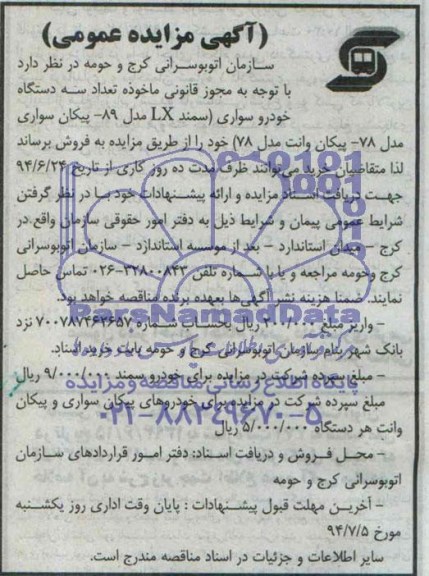 (آگهی مزایده عمومی)
سازمان اتوبوسرانی کرج و حومه در نظر دارد
با توجه به مجوز قانونی ماخوذه تعداد سه دستگاه
خودرو سواری (سمند LX مدل ۸۹- پیکان سواری
مدل ۷۸- پیکان وانت مدل ۷۸) خود را از طریق مزایده به فروش برساند
لذا متقاضیان خرید می‌توانند ظرف مدت ده روز کاری از تاریخ ۹۴/۶/۲۴
جهت دریافت اسناد مزایده و ارائه پیشنهادات خود با در نظر گرفتن
شرایط عمومی پیمان و شرایط ذیل به دفتر امور حقوقی سازمان واقع در
کرج - میدان استاندارد - بعد از موسسه استاندارد - سازمان اتوبوسرانی
کرج وحومه مراجعه و یا با شماره تلفن ۳۲۸۰۰۸۴۳-۰۲۶ تماس حاصل
نمایند. ضمنا هزینه نشر آگهی‌ها بعهده برنده مناقصه خواهد بود.
- واریز مبلغ ۲۰۰/۰۰۰ ریال بحساب شماره ۷۰۰۷۸۷۴۶۳۶۵۷ نزد
بانک شهر بنام سازمان اتوبوسرانی کرج و حومه بابت خرید اسناد.
- مبلغ سپرده شرکت در مزایده برای خودرو سمند ۹/۰۰۰/۰۰۰ ریال
مبلغ سپرده شرکت در مزایده برای خودروهای پیکان سواری و پیکان
وانت هر دستگاه ۵/۰۰۰/۰۰۰ ریال
- محل فروش و دریافت اسناد: دفتر امور قراردادهای سازمان
اتوبوسرانی کرج و حومه
- آخرین مهلت قبول پیشنهادات : پایان وقت اداری روز یکشنبه
مورخ ۹۴/۷/۵
سایر اطلاعات و جزئیات در اسناد مناقصه مندرج است.
ParsNamadData
پایگاه اطلاع رسانی مناقصه و مزایده
۰۲۱-۸۸۳۴۹۶۷۰-۵